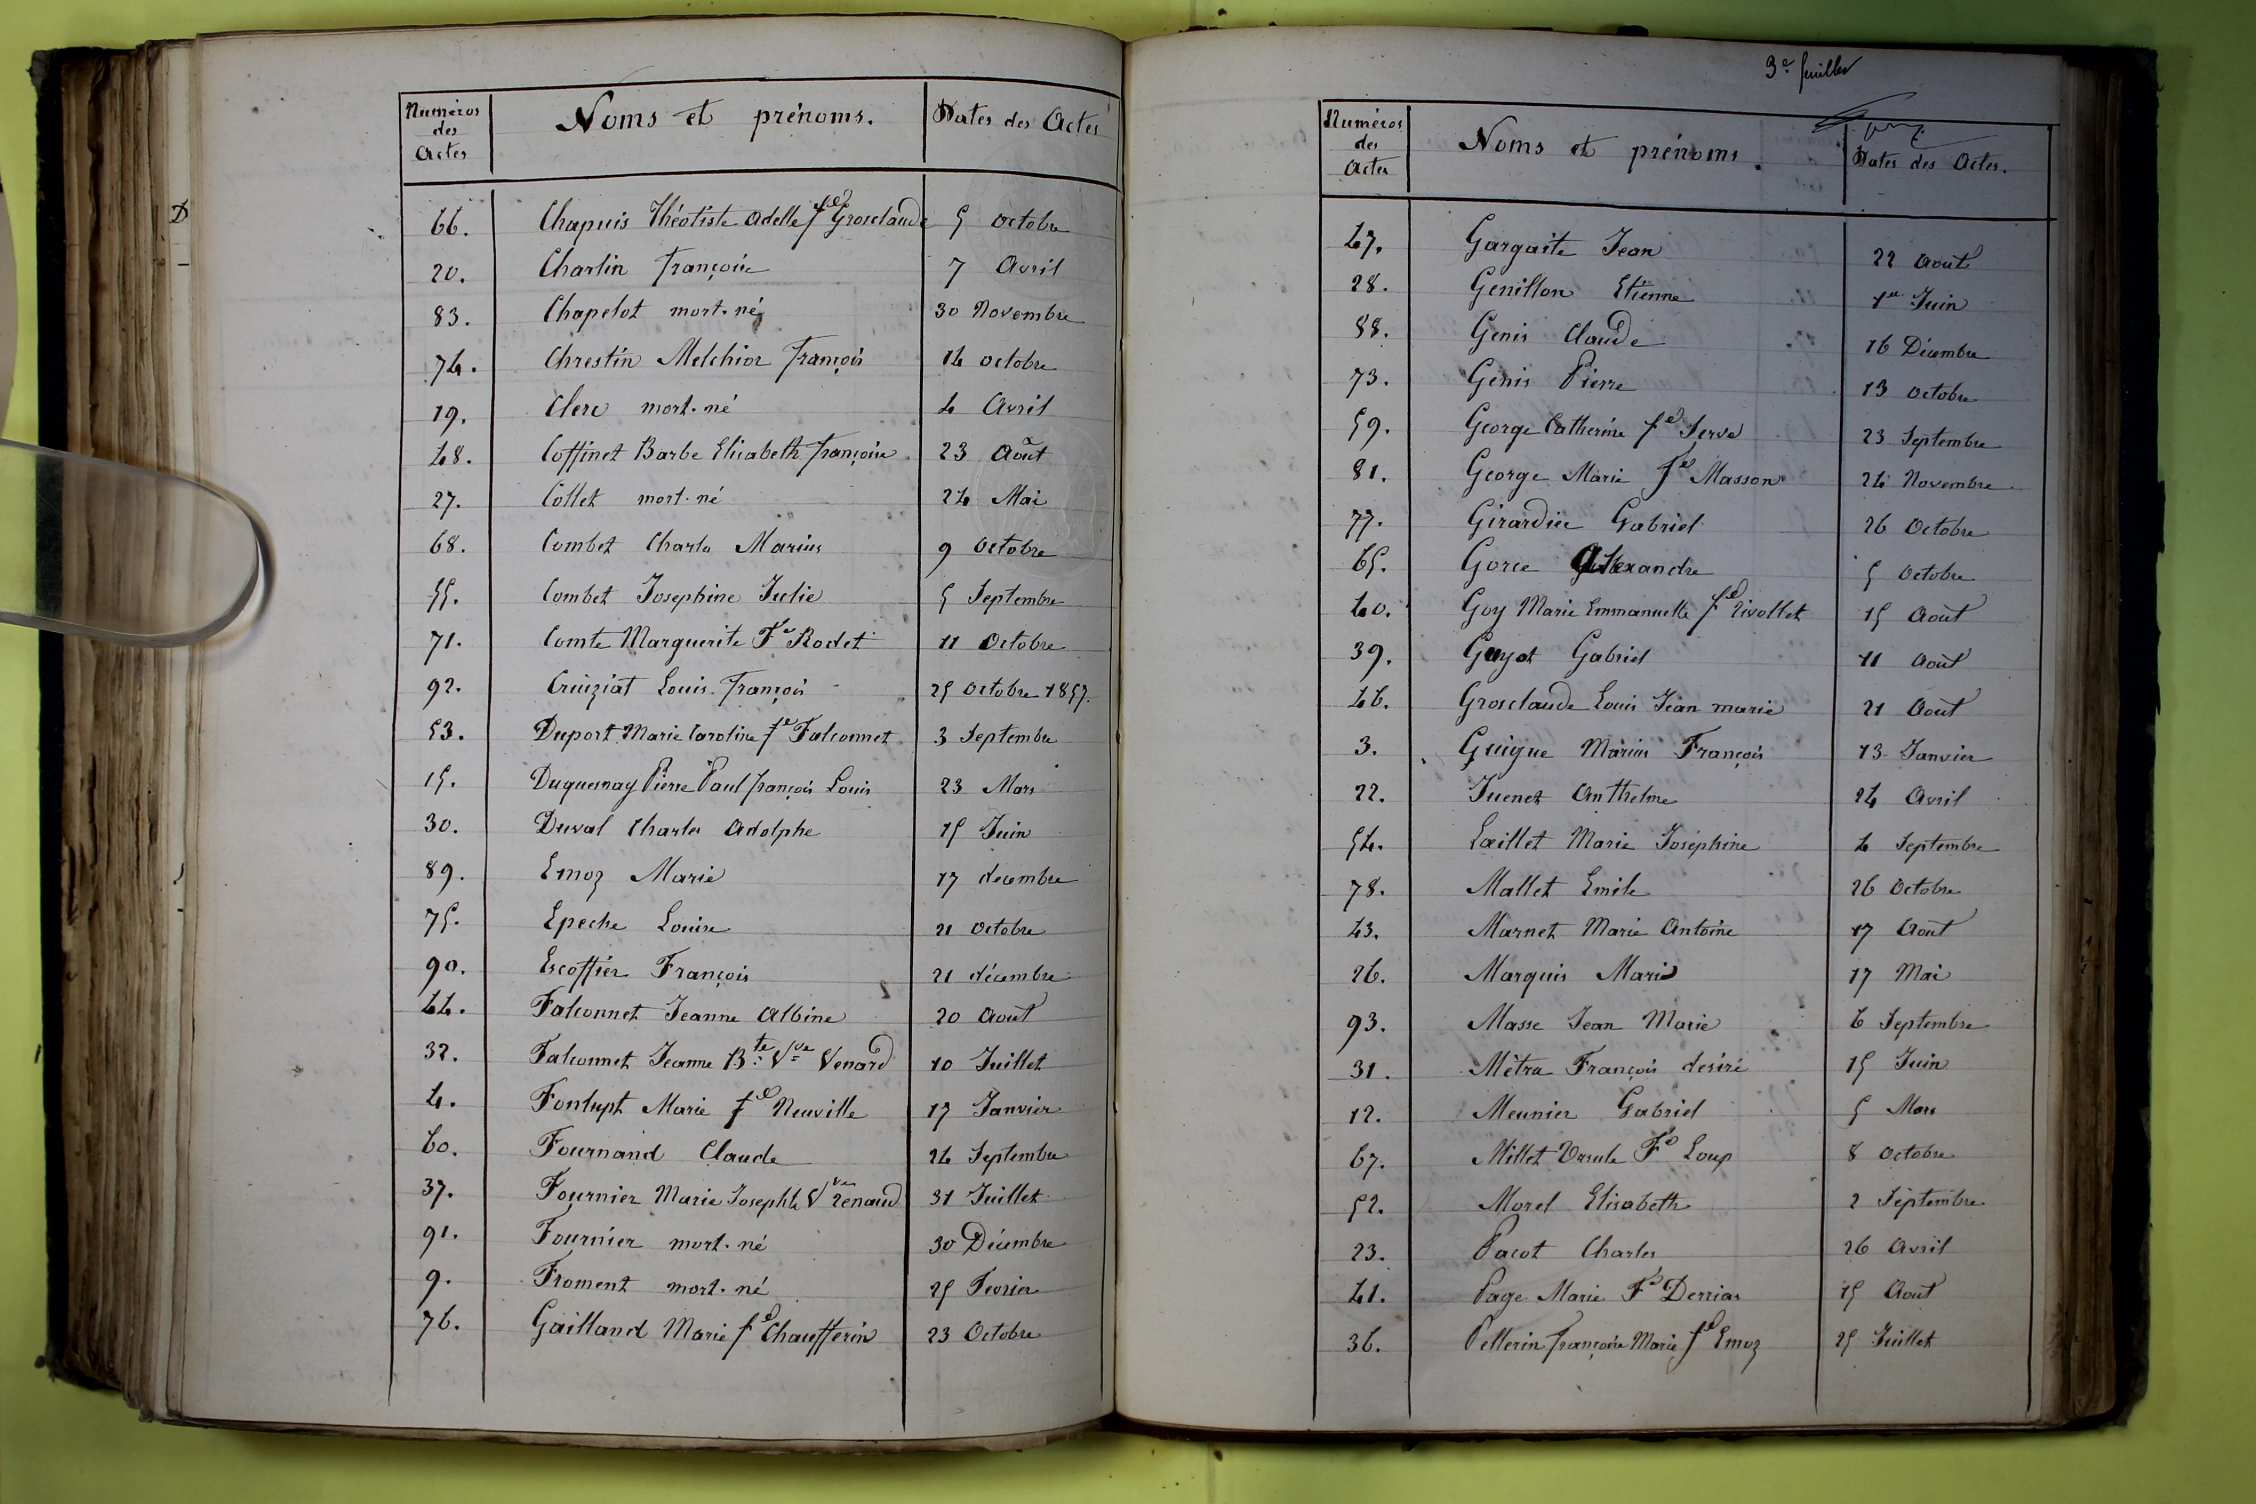 Numéros des Actes Noms et prénoms. Dates des Actes
66. Chapuis Théotiste Adelle fe Grosclaude 5 Octobre
20. Charlin Françoise 7 Avril
83. Chapelot mort-né 30 Novembre
74. Chrestin Melchior François 14 octobre
19. Clerc mort-né 4 Avril
48. Coffinet Barbe Elisabeth Françoise 23 Août
27. Collet mort-né 24 Mai
68. Combet Charles Marius 9 Octobre
55. Combet Josephine Julie 5 Septembre
71. Comte Marguerite Fe Rodet 11 Octobre
92. Cruiziat Louis François 25 Octobre 1857.
53. Duport Marie Caroline fe Falconnet 3 Septembre
15. Duquesnay Pierre Paul François Louis 23 Mars
30. Duval Charles Adolphe 15 Juin
89. Emoz Marie 17 decembre
75. Epeche Louise 21 octobre
90. Escoffier François 21 décembre
44. Falconnet Jeanne Albine 20 Août
32. Falconnet Jeanne Bte Vve Venard 10 Juillet
4. Fontupt Marie fe Neuville 17 Janvier
60. Fournand Claude 24 Septembre
37. Fournier Marie Josephte Vve Renaud 31 Juillet
91. Fournier mort-né 30 Décembre
9. Froment mort-né 25 Fevrier
76. Gailland Marie fe Chaufferin 23 Octobre
3e feuillet
Numéros des Actes Noms et prénoms. Dates des Actes.
47. Gargaite Jean 22 Août
28. Genillon Etienne 1er Juin
88. Genis Claude 16 Décembre
73. Genis Pierre 13 octobre
59. George Catherine fe Serve 23 Septembre
81. George Marie Fe Masson 24 Novembre
77. Girardier Gabriel 26 Octobre
65. Gorce Alexandre 5 Octobre
40. Goy Marie Emmanuelle fe Rivollet 15 Août
39. Guyot Gabriel 11 Août
46. Grosclaude Louis Jean marie 21 Août
3. Guigue Marius François 13 Janvier
22. Juenet Anthelme 24 Avril
54. Lœillet Marie Joséphine 4 Septembre
78. Mallet Emile 26 Octobre
43. Marnet Marie Antoine 17 Août
26. Marquis Marie 17 Mai
93. Masse Jean Marie 6 Septembre
31. Mètra François desiré 15 Juin
12. Meunier Gabriel 5 Mars
67. Millet Ursule Fe Loup 8 Octobre
52. Morel Elisabeth 2 Septembre
23. Pacot Charles 26 Avril
41. Page Marie Fe Derrias 15 Août
36. Pellerin Françoise Marie fe Emoz 25 Juillet